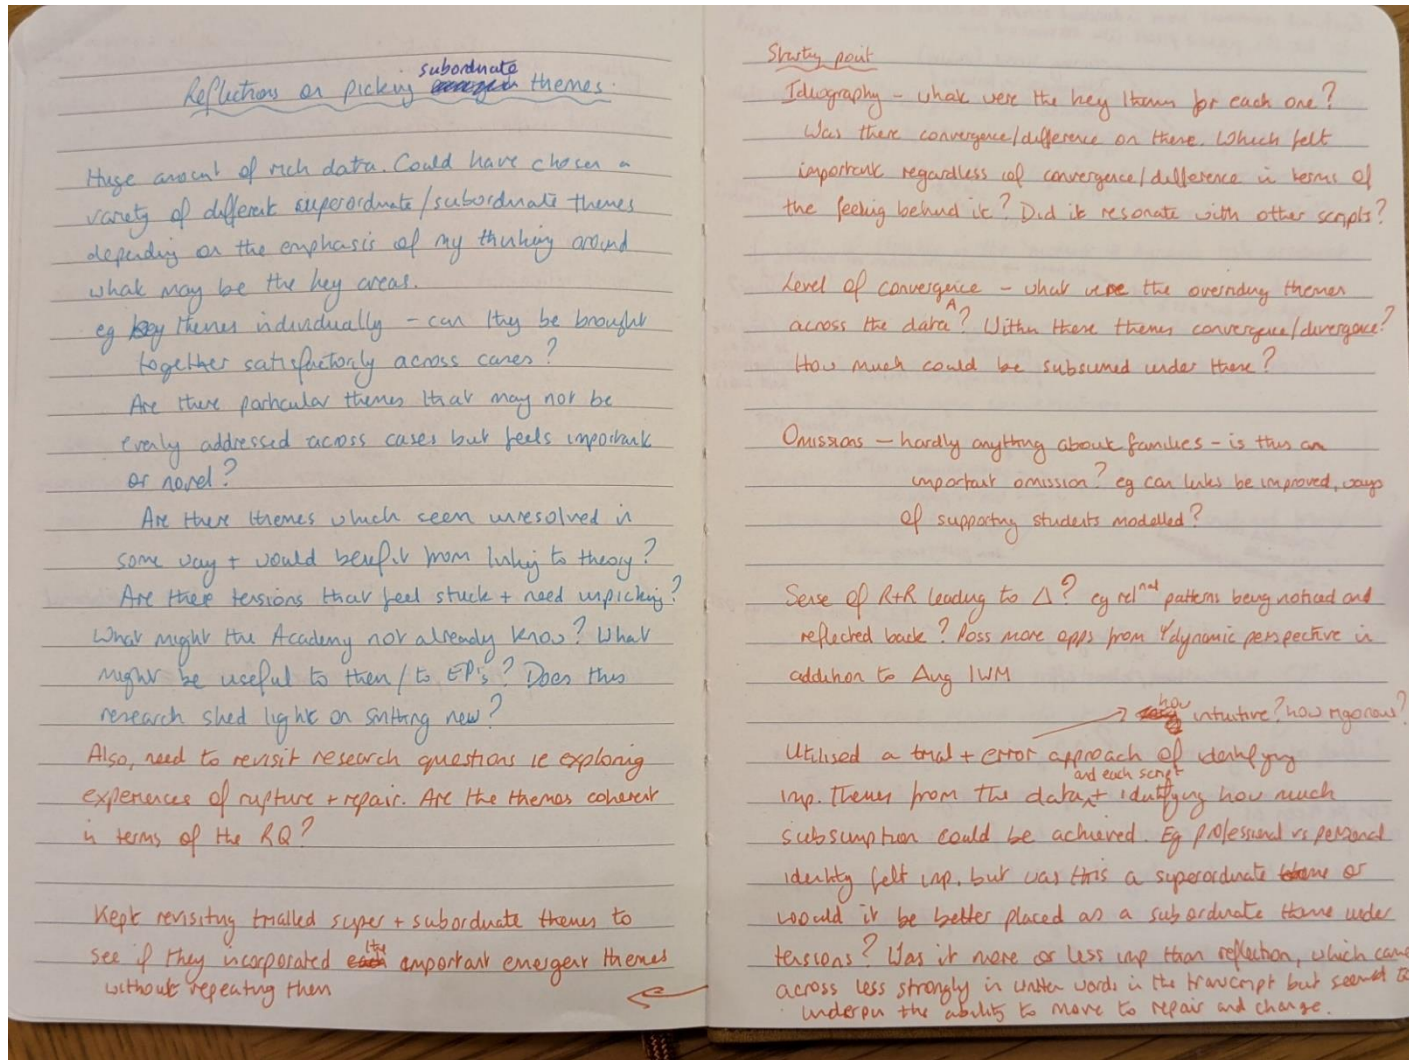 Reflections on picking subordinate themes.
Huge amount of rich data. Could have chosen a
variety of different superordinate/subordinate themes
depending on the emphasis of my thinking around
what may be the key areas.
eg key themes individually – can they be brought
together satisfactorily across cases?
Are there particular themes that may not be
evenly addressed across cases but feels important
or novel?
Are there themes which seem unresolved in
some way + would benefit from linking to theory?
Are there tensions that feel stuck + need unpicking?
What might the Academy not already know? What
might be useful to them/to EPs? Does this
research shed light on smthing new?
Also, need to revisit research questions ie exploring
experiences of rupture + repair. Are the themes coherent
in terms of the RQ?
Kept revisiting trialled super + subordinate themes to
see if they incorporated the important emergent themes
without repeating them
Starting point
Ideography – what were the key themes for each one?
Was there convergence/difference on these. Which felt
important regardless of convergence/difference in terms of
the feeling behind it? Did it resonate with other scripts?
Level of convergence – what were the overriding themes
across the data? Within these themes convergence/divergence?
How much could be subsumed under these?
Omissions – hardly anything about families – is this an
important omission? eg can links be improved, ways
of supporting students modelled?
Sense of R+R leading to Δ? eg rel^nal patterns being noticed and
reflected back? Poss more opps from Ψdynamic perspective in
addition to Aug IWM
how intuitive? how rigorous?
Utilised a trial + error approach of identifying
imp. themes from the data and each script + identifying how much
subsumption could be achieved. Eg professional vs personal
identity felt imp. but was this a superordinate theme or
would it be better placed as a subordinate theme under
tensions? Was it more or less imp than reflection, which came
across less strongly in written words in the transcript but seemed to
underpin the ability to move to repair and change.